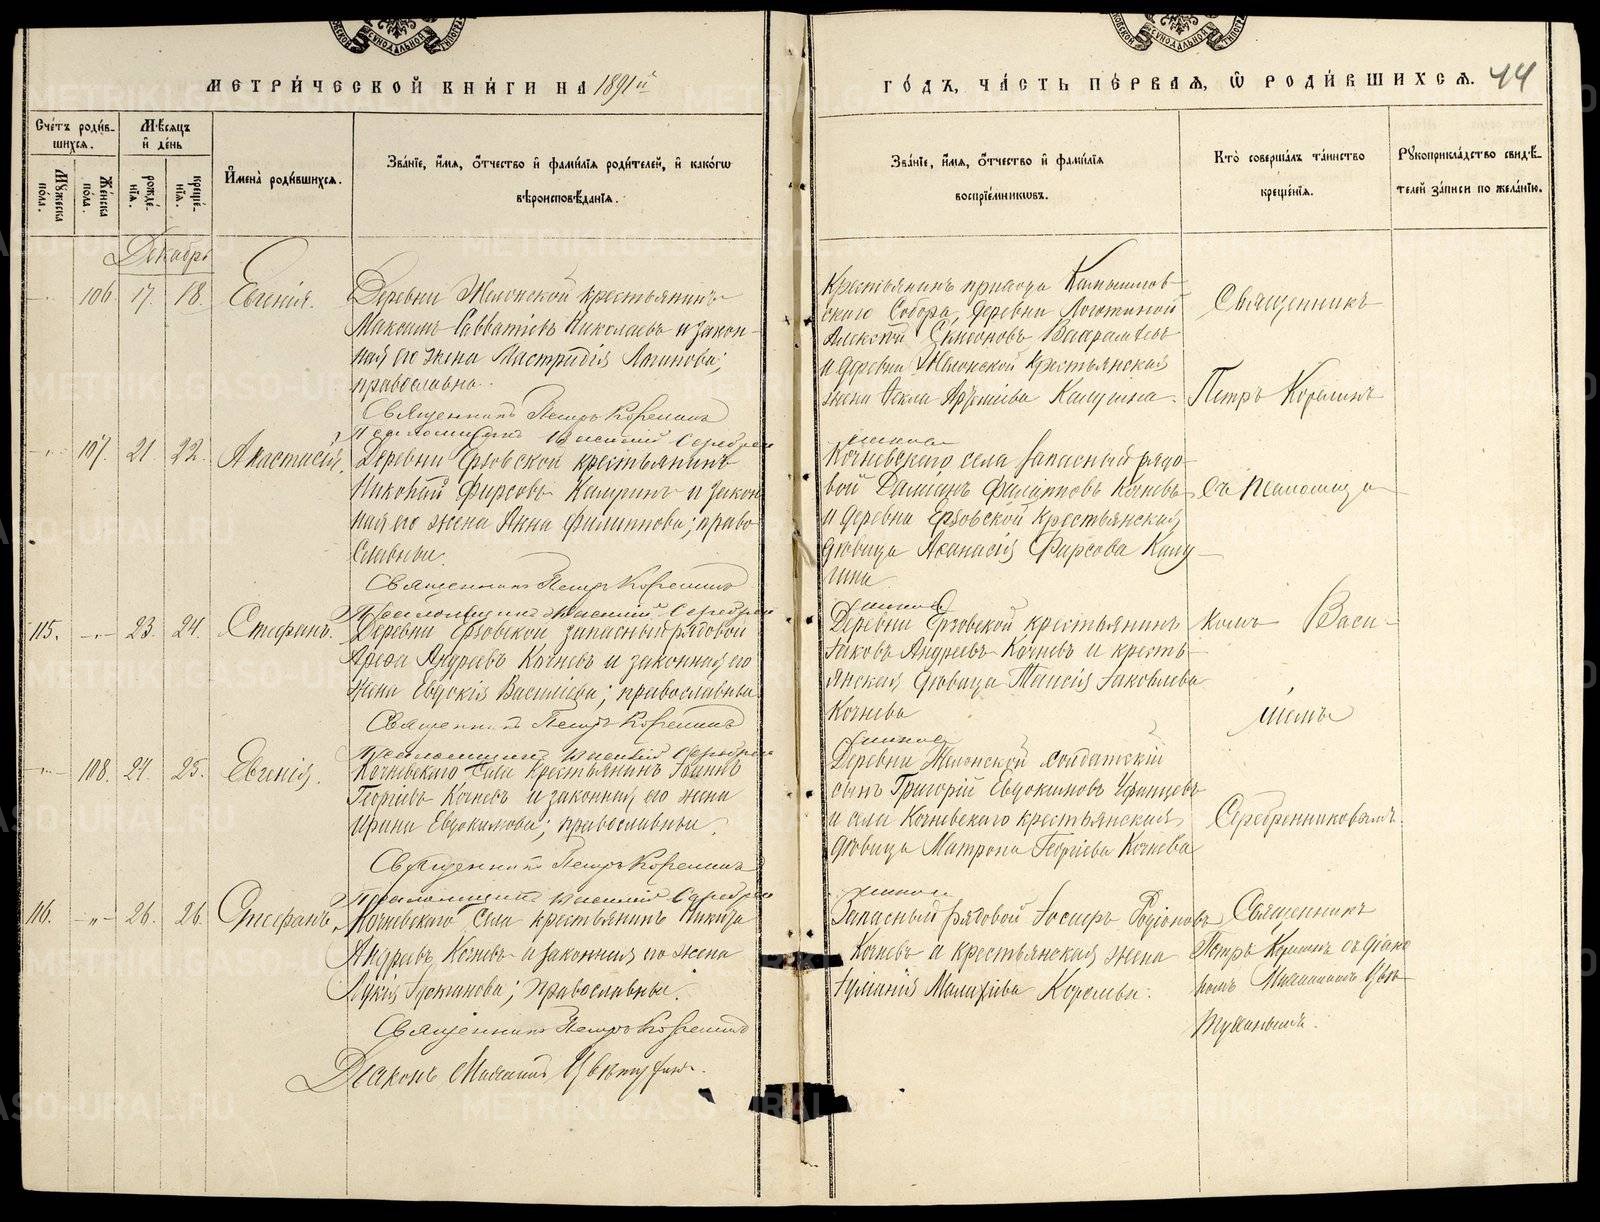 МЕТРИ́ЧЕСКОЙ КНИ́ГИ НА 1891й
ГО́ДЪ, ЧА́СТЬ ПЕ́РВАѦ, Ѽ РОДИ́ВШИХСѦ. 44
Сче́тъ роди́в-
шихся.
Мѣ́сяцъ
и҆ де́нь
Мꙋ́жеска
по́ла.
Же́нска
по́ла.
рожде́-
нїя.
креще́-
нїя.
И҆мена̀ роди́вшихся.
Зва́нїе, и҆́мя, ѻ҆́тчество и҆ фамѝлїя роди́телей, и҆ како́гѡ
вѣроисповѣ́данїя.
Зва́нїе, и҆́мя, ѻ҆́тчество и҆ фамѝлїя
воспрїе́мникѡвъ.
Кто̀ соверша́лъ та́инство
креще́нїя.
Рꙋкоприкла́дство свидѣ́-
телей за́писи по жела́нїю.
Декабрь
106. 17. 18. Евгенія.
Деревни Жилонской крестьянинъ
Максимъ Савватіевъ Николаевъ и закон-
ная его жена Мастридія Логинова;
православна.
Священникъ Петръ Корелинъ
Псаломщикъ Василій Серебрен
никовъ
Крестьянинъ прихода Камышлов-
скаго Собора, деревни
Алексѣй Симеоновъ
и деревни Жилонской крестьянская
жена Ѳекла Калугина.
Священникъ
Петръ Корелинъ
107. 21 22. Анастасія.
Деревни Ерзовской крестьянинъ
Николай Фирсовъ Калугинъ и закон
ная его жена Анна Филиппова; право-
славные.
Священникъ Петръ Корелинъ
Псаломщикъ Василій Серебрен
никовъ
Кочневскаго села запасный рядо-
вой Даміанъ Филипповъ Кочневъ
и деревни Ерзовской крестьянская
дѣвица Аѳанасія Фирсова Калу-
гина
съ псаломщи-
115. 23. 24. Стефанъ.
Деревни Ерзовской запасный рядовой
Андреевъ Кочневъ и законная его
жена Евдокія Васильева; православные
Священникъ Петръ Корелинъ
Псаломщикъ Василій Серебрен
никовъ
Деревни Ерзовской крестьянинъ
Іаковъ Андреевъ Кочневъ и кресть-
янская дѣвица Таисія Іаковлева
Кочнева
комъ Васи-
ліемъ
108. 24. 25. Евгенія.
Кочневскаго села крестьянинъ Іоаннъ
Георгіевъ Кочневъ и законная его жена
Ирина Евдокимова; православные.
Священникъ Петръ Корелинъ
Псаломщикъ Василій Серебрен
никовъ
Деревни Жилонской солдатскій
сынъ Григорій Евдокимовъ Уфинцевъ
и села Кочневскаго крестьянская
дѣвица Матрона Георгіева Кочнева
Серебренниковымъ.
116. 26. 26. Стефанъ.
Кочневскаго села крестьянинъ Никита
Андреевъ Кочневъ и законная его жена
Лукія; православные.
Священникъ Петръ Корелинъ
Діаконъ
Запасный рядовой Іосифъ Родіоновъ
Кочневъ и крестьянская жена
Іуліанія Малахіева
Священникъ
Петръ Корелинъ съ діако
номъ